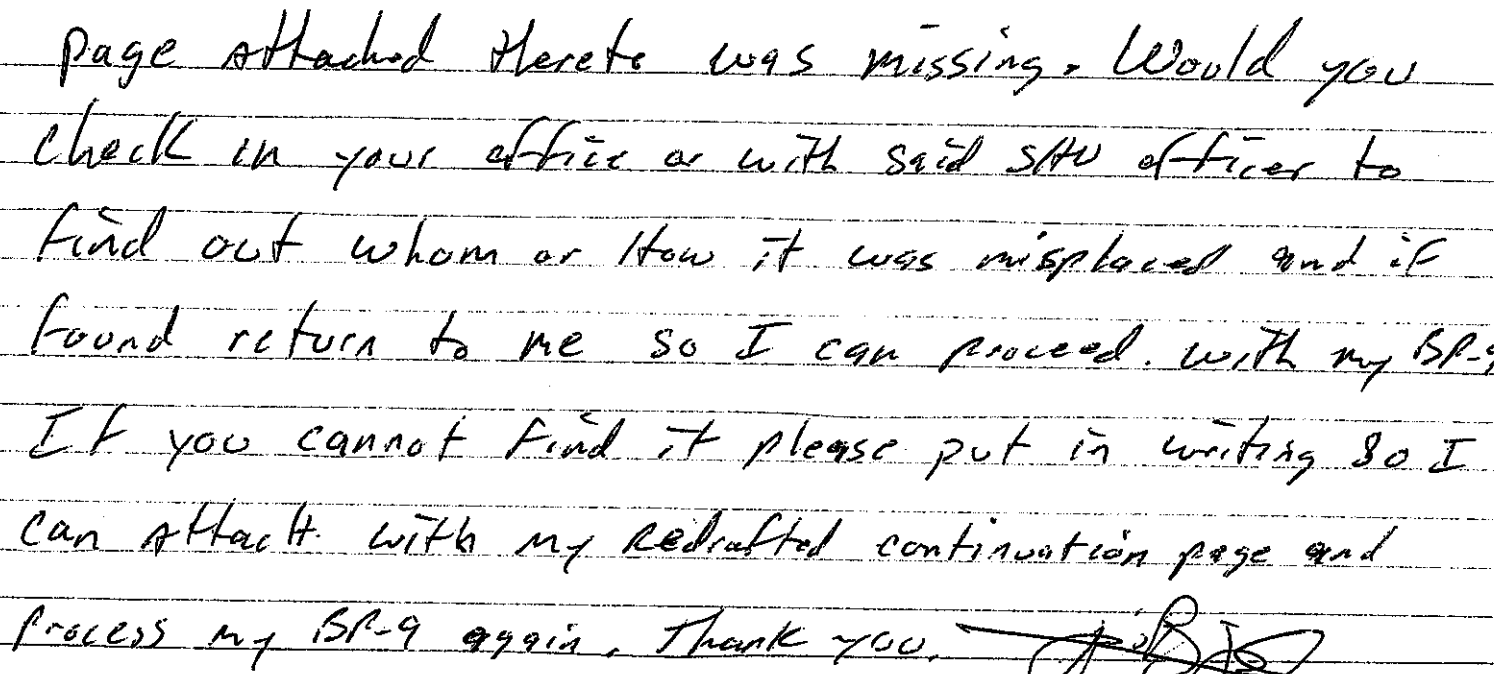 page attached thereto was missing. Would you
check in your office or with said SHU officer to
find out whom or How it was misplaced and if
found return to me so I can proceed. with my BP-9
If you cannot find it please put in writing so I
can attach with my redrafted continuation page and
process my BP-9 again. Thank you.